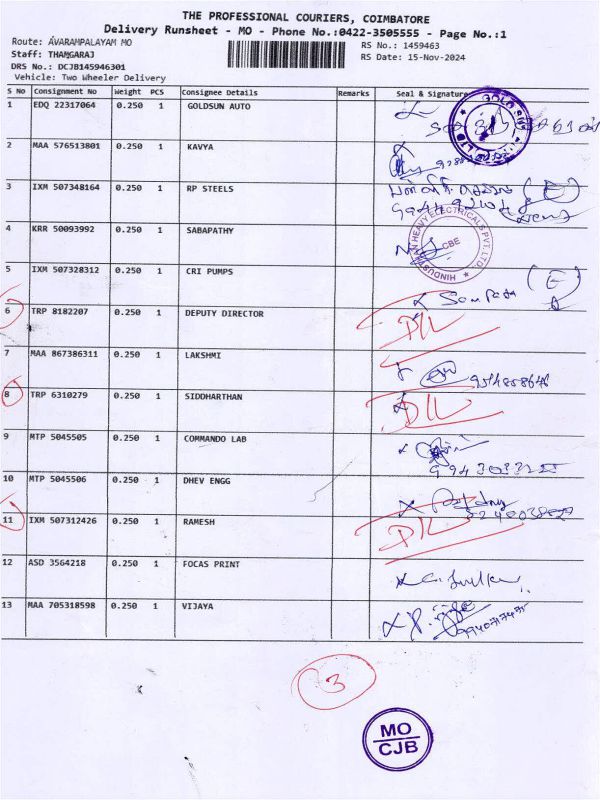 THE PROFESSIONAL COURIERS, COIMBATORE
Delivery Runsheet - MO - Phone No.:0422-3505555 - Page No.:1
Route: AVARAMPALAYAM MO
Staff: THANGARAJ
DRS No.: DCJB145946301
Vehicle: Two Wheeler Delivery
RS No.: 1459463
RS Date: 15-Nov-2024
S No Consignment No Weight PCS Consignee Details Remarks Seal & Signature
1 EDQ 22317064 0.250 1 GOLDSUN AUTO
2 MAA 576513801 0.250 1 KAVYA
3 IXM 507348164 0.250 1 RP STEELS
4 KRR 50093992 0.250 1 SABAPATHY
HINDUSTAN HEAVY ELECTRICALS PVT. LTD. CBE
5 IXM 507328312 0.250 1 CRI PUMPS
6 TRP 8182207 0.250 1 DEPUTY DIRECTOR D/L
7 MAA 867386311 0.250 1 LAKSHMI
8 TRP 6310279 0.250 1 SIDDHARTHAN D/L
9 MTP 5045505 0.250 1 COMMANDO LAB
10 MTP 5045506 0.250 1 DHEV ENGG
11 IXM 507312426 0.250 1 RAMESH D/L
12 ASD 3564218 0.250 1 FOCAS PRINT
13 MAA 705318598 0.250 1 VIJAYA
3
MO
CJB